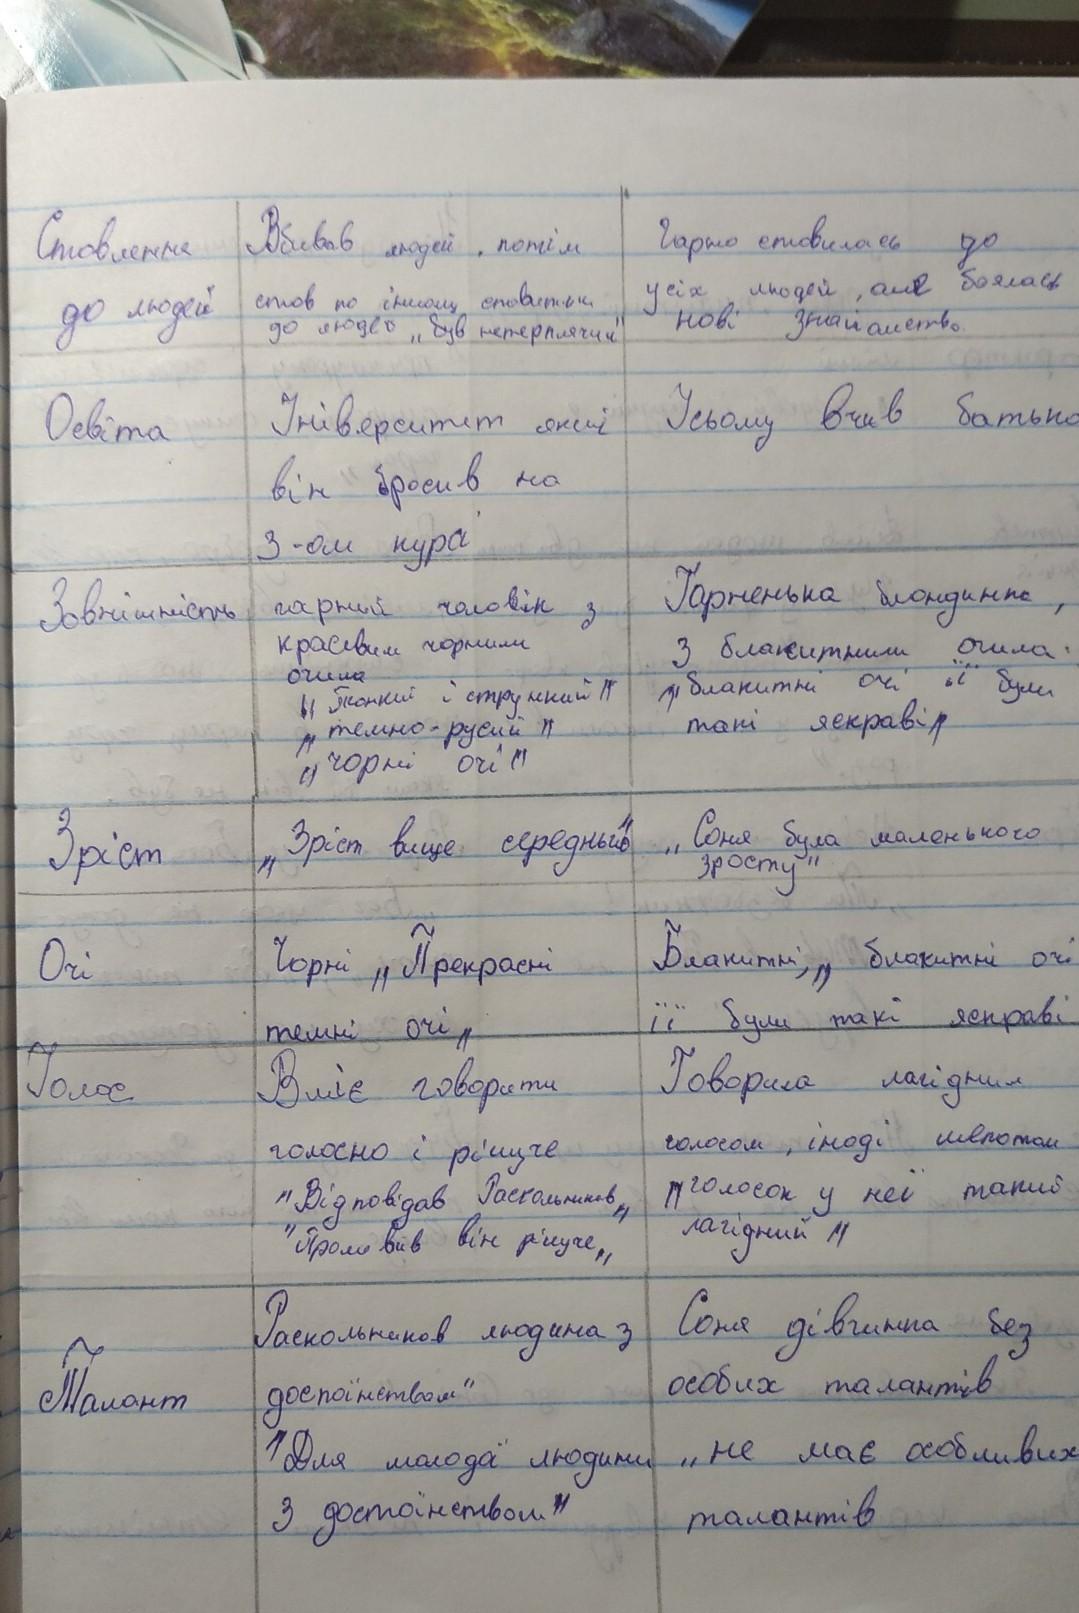 Ставлення
до людей
Вбивав людей, потім
став по іншому ставитися
до людей „був нетерплячий"
Гарно ставилась до
усіх людей, але боялась
нові знайомства.
Освіта
Університет який
він бросив на
3-ом курсі
Усьому вчив батько
Зовнішність
гарний чоловік з
красивим чорними
очима
„Тонкий і стрункий"
„темно-русий"
„чорні очі"
Гарненька блондинка,
з блакитними очима.
„блакитні очі її були
такі яскраві„
Зріст
„Зріст вище середньый"
„Соня була маленького
зросту"
Очі
Чорні „Прекрасні
темні очі„
Блакитні, „блакитні очі
її були такі яскраві
Голос
Вміє говорити
голосно і рішуче
"Відповідав Раскольников„
"Промовив він рішуче„
Говорила лагідним
голосом, іноді шепотом
„голосок у неї такий
лагідний"
Талант
Раскольников людина з
достоїнством"
"Для молодої людини
З достоїнством"
Соня дівчинка без
особих талантів
„не має особливих
талантів